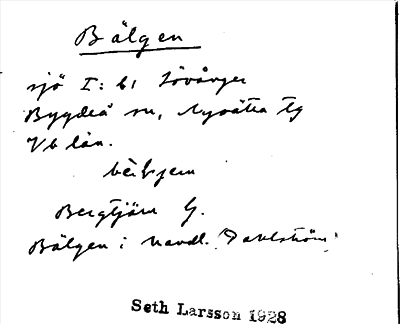 Bälgen
sjö I: b; Lövånger
Bygdeå sn, Nysätra tg
Vb län.
Bergtjärn G.
Bälgen i havdl. Dahlström
Seth Larsson 1928